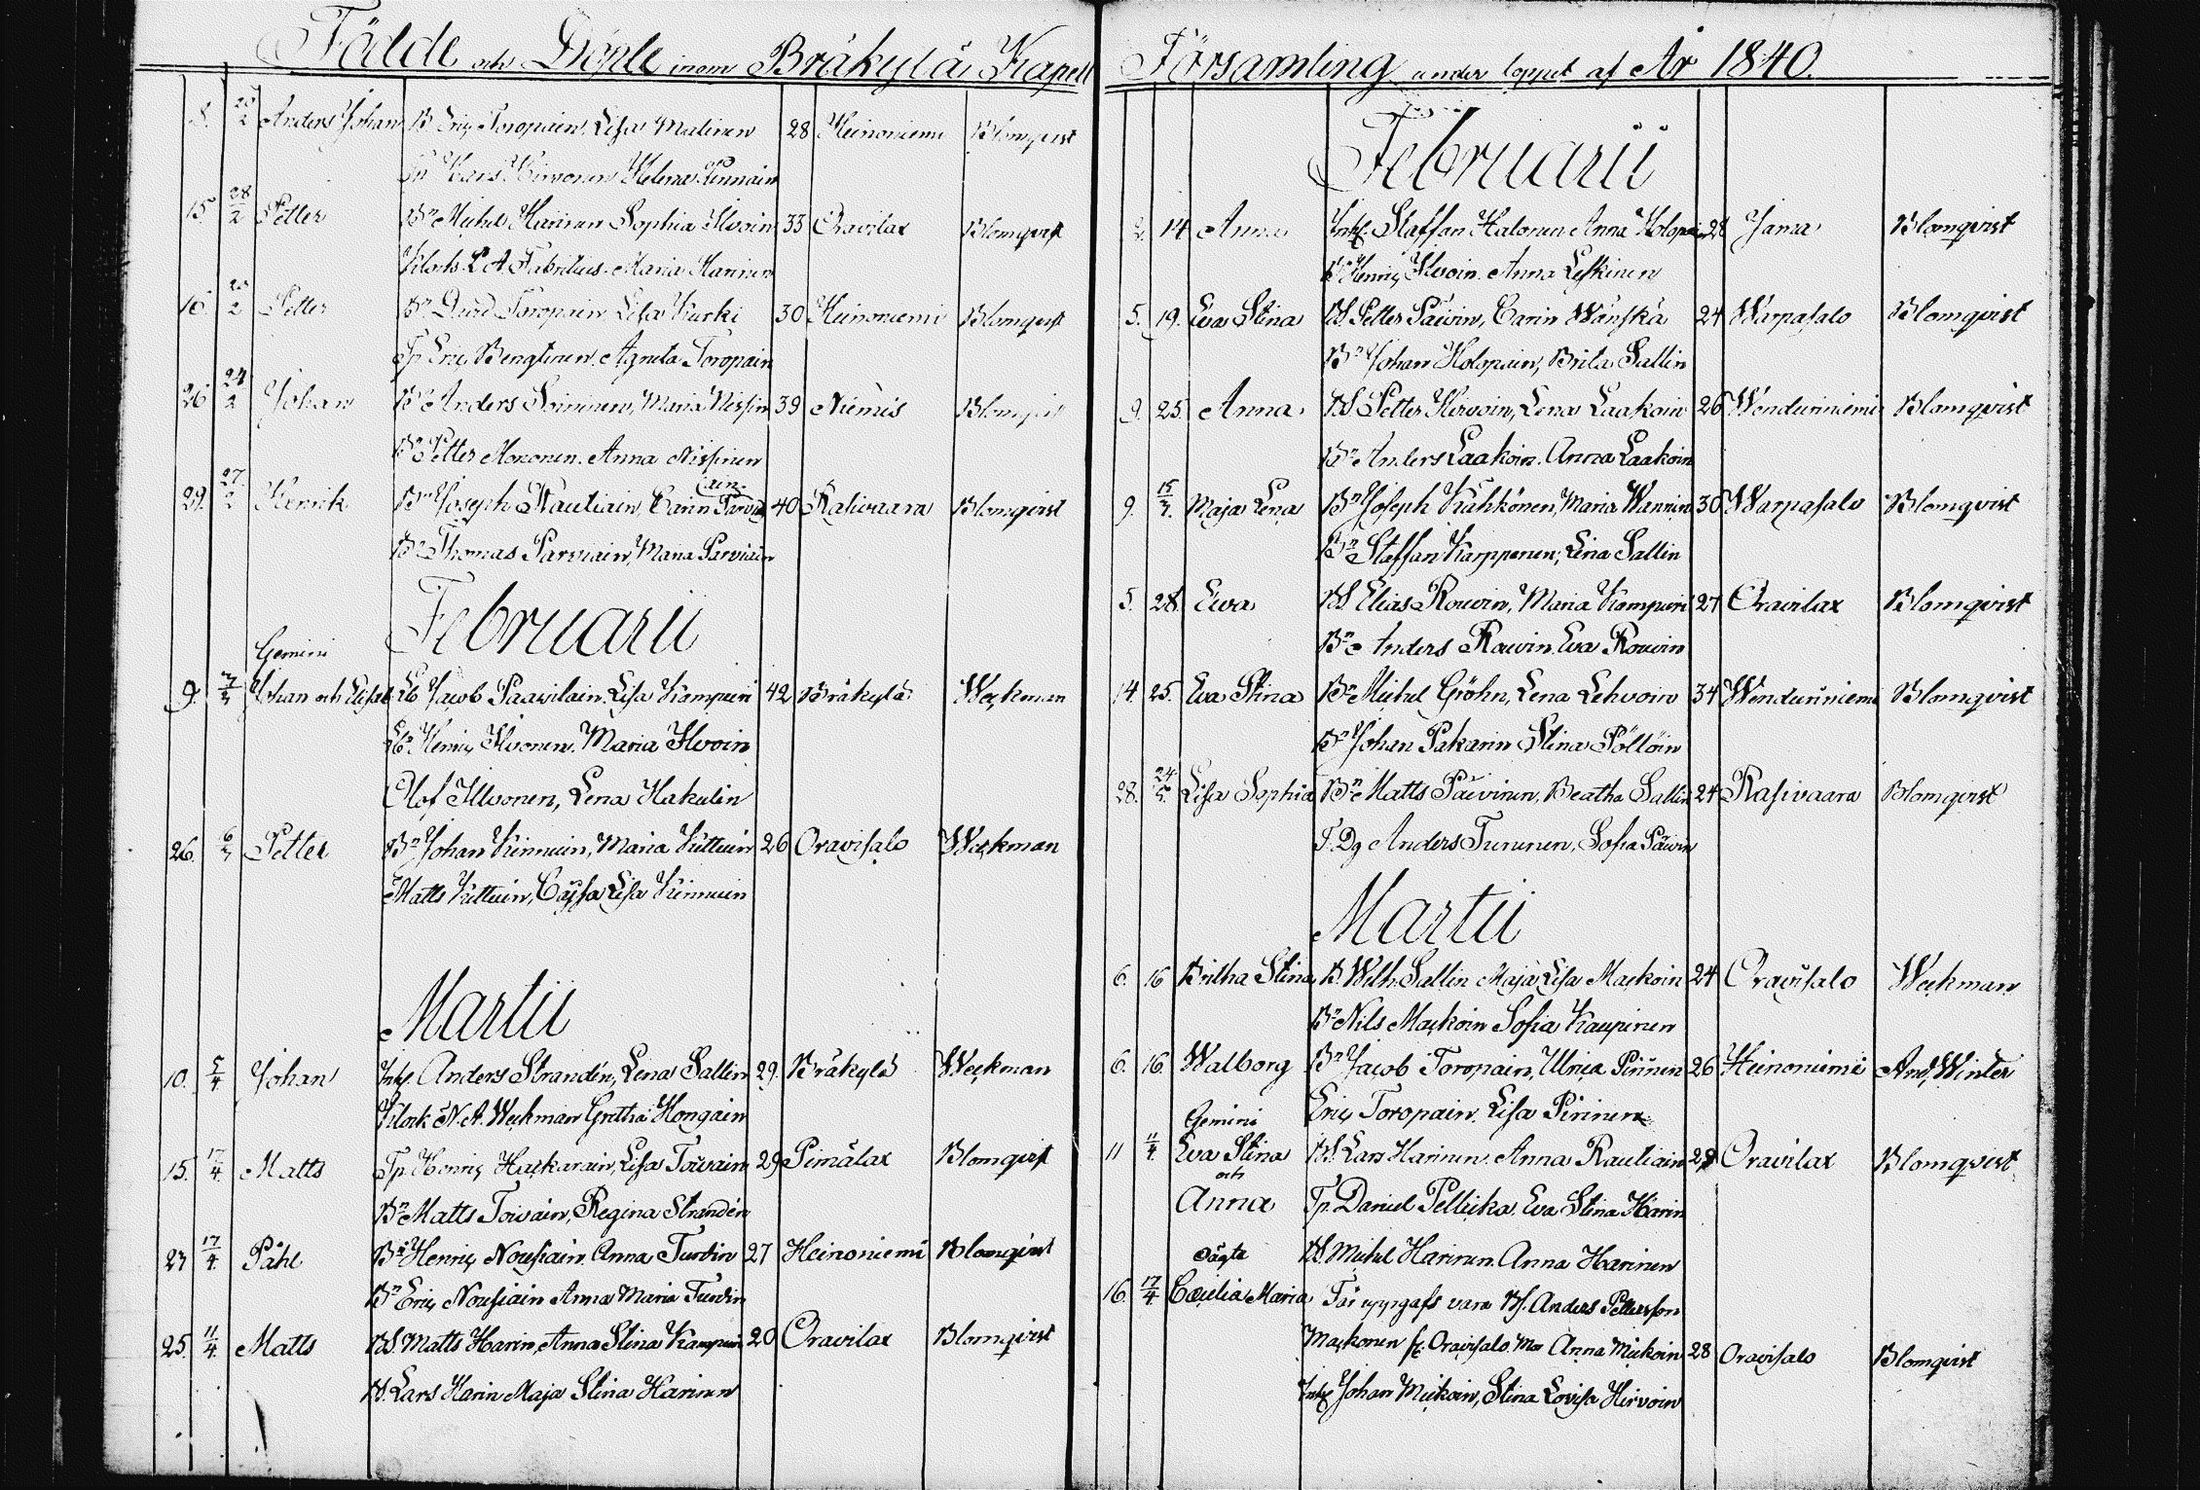 Födde och Döpte inom Bräkylä Kapell
8. 23/2 Anders Johan B. Eric Toropain, Lisa Malinen 28 Heinoniemi Blomqvist
Lars Hirvonen Helena Kinnain
15. 28/2 Petter Bn Michel Harinen Sophia Ilvoin 33 Oravilax Blomqvist
Klock. L. A. Fabritius. Maria Harinen
16. 23/2 Petter Bn Toropain Lisa Kurki 30 Heinoniemi Blomqvist
Tp Eric Bengtinen. Agneta Toropain
26 24/2 Johan Bn Anders Soininen, Maria Nissin 39 Niemis Blomqvist
Bn Petter Mononen. Anna Nissinen
29. 27/2 Henrik Bn Joseph Rautiain, Carin Parviain 40 Rasivaara Blomqvist
Bn Thomas Parviain, Maria Parviain
Februarii
Gemini
9. 7/3 Johan och Elisab Lb Jacob Paavilain. Lisa Kampuin 42 Bräkylä Weckman
Lb Henric Ilvonen. Maria Ilvoin
Olof Illvonen, Lena Hakulin
26. 6/3 Petter Bn Johan Kinnuin, Maria Kuttuin 26 Oravisalo Weckman
Matts Kuttuin, Cajsa Lisa Kinnuin
Martii
10. 5/4 Johan Inh. Anders Strandén, Lena Sallin 29. Bräkylä Weckman
Klock N. A. Weckman Gretha Hongain
15. 17/4 Matts Tp Henric Hackarain, Lisa Toivain 29 Pimälax Blomqvist
Bn Matts Toivain, Regina Strandén
23 17/4 Påhl Bn Henric Nousiain. Anna Turoin 27 Heinoniemi Blomqvist
Bn Eric Nousiain Anna Maria Turoin
25. 11/4 Matts BS. Matts Harin, Anna Stina Kampuin 20 Oravilax Blomqvist
B. Lars Harin Maja Stina Harinen
Församling under loppet af År 1840.
Februarii
2. 14 Anna Inh. Staffan Halonen Anna Holopain 28 Jama Blomqvist
Bn Henric Ilvoin. Anna Leskinen
5. 19. Eva Stina BS Petter Päivin, Carin Wänskä 24 Warpasalo Blomqvist
Bn Johan Holopain, Brita Sallin
9. 25. Anna BS Petter Hirvoin, Lena Laakoin 26 Wenduiniemi Blomqvist
Bn Anders Laakoin. Anna Laakoin
9. 15/3. Maja Lena Bn Joseph Kähkönen, Maria Wannin 30 Warpasalo Blomqvist
Bn Staffan Karpponen; Lena Sallin
5. 28. Ewa BS Elias Rouvin, Maria Kampuin 27 Oravilax Blomqvist
Bn Anders Rouvin. Eva Rouvin
14. 25. Eva Stina Bn Michel Gröhn, Lena Lehvoin 34 Wenduniniemi Blomqvist
Bn Johan Pakarin Stina Pöllöin
28. 24/5. Lisa Sophia Bn Matts Päivinen, Beatha Sallin 24 Rasivaara Blomqvist
T. Dg Anders Turunen, Sofia Päivin
Martii
6. 16 Britha Stina B. Wilh. Sallin Maja Lisa Mackoin 24 Oravisalo Weckman
Bn Nils Mackoin Sofia Kaupinen
6. 16 Walborg Bn Jacob Toropain, Ulrica Pirinen 26 Heinoniemi And. Winter
Eric Toropain. Lisa Pirinen
Gemini
11 11/4. Eva Stina BS. Lars Harinen. Anna Rautiain 29 Oravilax Blomqvist
och
Anna Tp. Daniel Pellicka. Eva Stina Harin
B. Michel Harinen. Anna Harinen
oägta
16. 17/4 Cæcilia Maria Far uppgafs vara Bs. Anders Pettersson
Mackonen fr. Oravisalo. Mor Anna Mickoin 28 Oravisalo Blomqvist
Inh. Johan Mickoin, Stina Lovisa Hirvoin